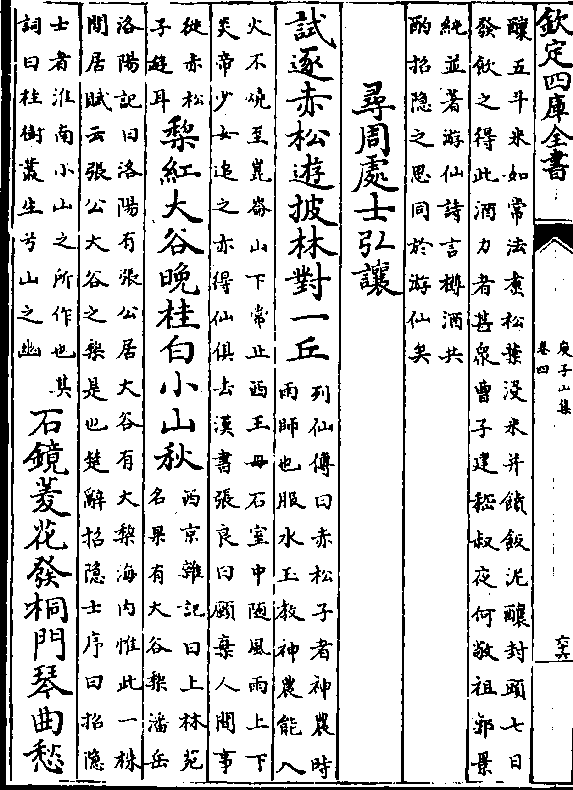 欽定四庫全書
庾子山集
卷四
六六
釀五斗米如常法煮松葉沒米并饙飯泥釀封頭七日
發飲之得此酒力者甚衆曹子建嵇叔夜何敬祖郭景
純並著游仙詩言樽酒共
酌招隐之思同於游仙矣
尋周處士弘讓
試逐赤松遊披林對一丘
列仙傳曰赤松子者神農時
雨師也服水玉教神農能入
火不燒至崑崙山下常止西王母石室中隨風雨上下
炎帝少女追之亦得仙俱去漢書張良曰願棄人間事
從赤松
子遊耳
梨紅大谷晚桂白小山秋
西京雜記曰上林苑
名果有大谷梨潘岳
洛陽記曰洛陽有張公居大谷有大梨海内惟此一株
間居賦云張公大谷之梨是也楚辭招隐士序曰招隐
士者淮南小山之所作也其
詞曰桂樹叢生兮山之幽
石鏡菱花發桐門琴曲愁